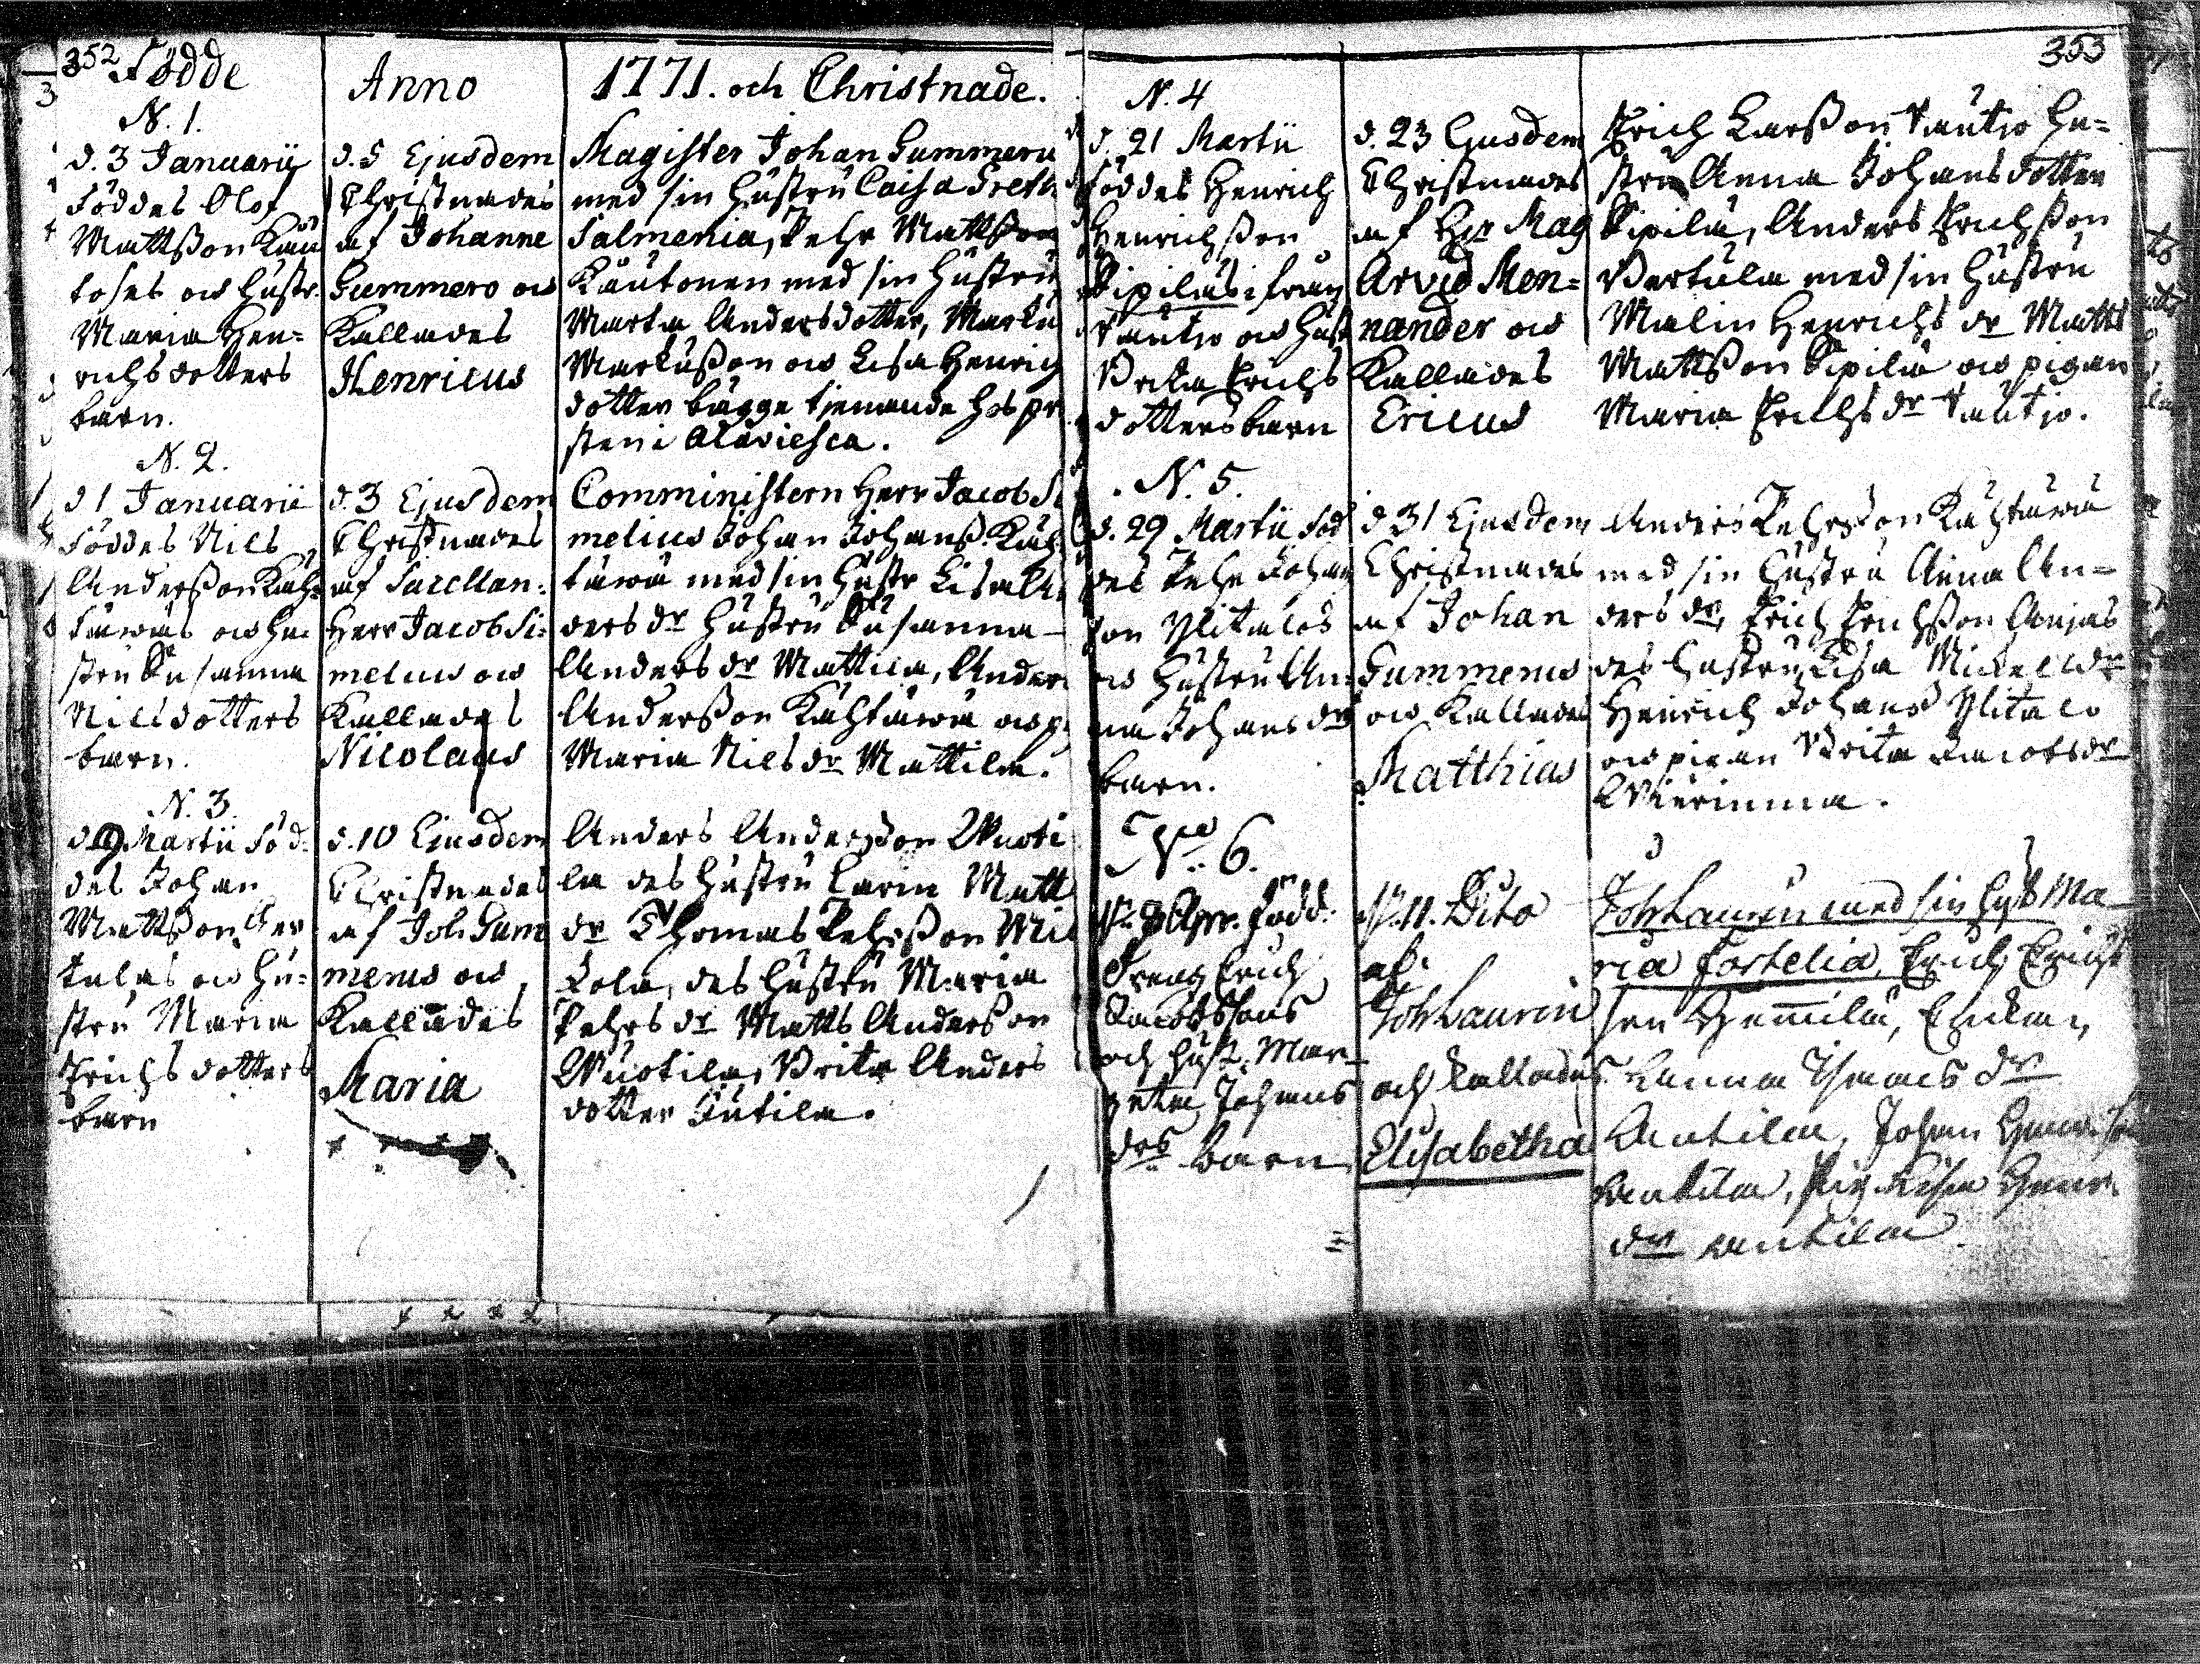 352 Födde Anno 1771. och Christnade.
N. 1.
d. 3 Januarij
Föddes Olof
Mattsson Kau
toses och hustr.
Maria Hen=
richsdotters
barn.
d. 5 Ejusdem
Christnades
af Johanne
Gummero och
Kallades
Henricus
Magister Johan Gummeru
med sin hustru Caisa Greth
Salmenia, Pehr Mattsson
Kautonen med sin hustru
Marta Andersdotter, Marku
Markusson och Lisa Henrich
dotter bägge tjenande hos pr
sten i Alaviesca.
N. 2.
d 1 Januarii
Föddes Nils
Andersson Käh=
täwäs och hu
stru Susanna
Nilsdotters
barn.
d. 3 Ejusdem
Christnades
af Sacellan:
Herr Jacob Si:
melius och
Kallades
Nicolaus
Comministern Herr Jacob Si
melius Johan Johanss. Käh
täwä med sin hustr Lisa An
ders dr hustru Susanna
Anders dr Mattila, Anders
Andersson Kähtäwä och p
Maria Nils dr Mattila.
N. 3.
d. 9 Martii Föd
des Johan
Mattsson
talas och hu=
stru Maria
Erichsdotters
barn
d. 10 Ejusdem
Christnades
af Joh Gum
merus och
Kallades
Maria
Anders Andersson Wuoti
la des hustru Carin Matt
dr Thomas Pehrsson Mi
kola, des hustru Maria
Pehrs dr Matts Andersson
Wuotila, Brita Anders
dotter Jutila.
353
N. 4
d. 21 Martii
Föddes Henrich
Henrichsson
Sipiläs ifrån
Tautio och hust
Brita Erichs
dotters barn
d. 23 Ejusdem
Christnades
af Hr Mag
Arvid Men=
nander och
Kallades
Ericus
Erich Larsson Tautio hu=
stru Anna Johansdotter
Sipilä, Anders Erichsson
Vertala med sin hustru
Malin Henrichs dr Matts
Mattsson Sipilä och pigan
Maria Erichs dr Tautio.
N. 5.
d. 29 Martii föd
des Pehr Johan
son Ylitalos
och hustru An=
na Johans dr
barn.
d 31 Ejusdem
Christnades
af Johan
Gummerus
och Kallades
Matthias
Anders Pehrsson Kähtäwä
med sin hustru Anna An=
ders dr, Erich Erichsson
des hustru Lisa Mickels dr
Henrich Johanss Ylitalo
och pigan Brita Jacobs dr
Wierimma.
No: 6.
Apr. född.
Dreng Erich
Jacobssons
och hust. Mar-
geta Johans
drs barn
d. 11. Dito
af
Joh Laurin
och kallades
Elisabetha
Joh Laurin med sin hust Ma
ria Fortelia, Erich Erichs
son
Hannila,
Isaacs dr
Antila, Johan Henr. son
Antila, Pig. Lisa Henr.
dr Antila